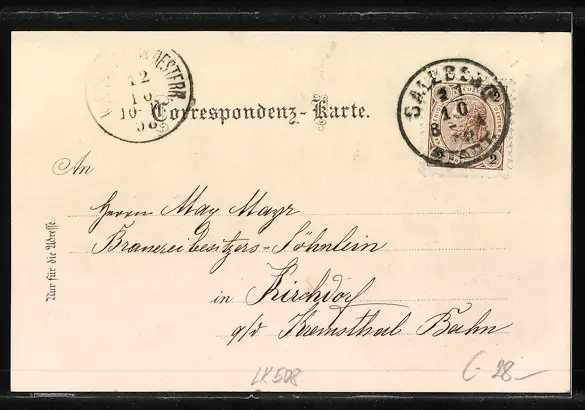 OESTERR.
12
10
98
SALZBURG
11
10
2
Correspondenz-Karte.
An
Herrn Max Mayr
Brauereibesitzers-Söhnlein
in Kirchdorf
a/d Kremsthal Bahn
Nur für die Adresse
LK508
28-